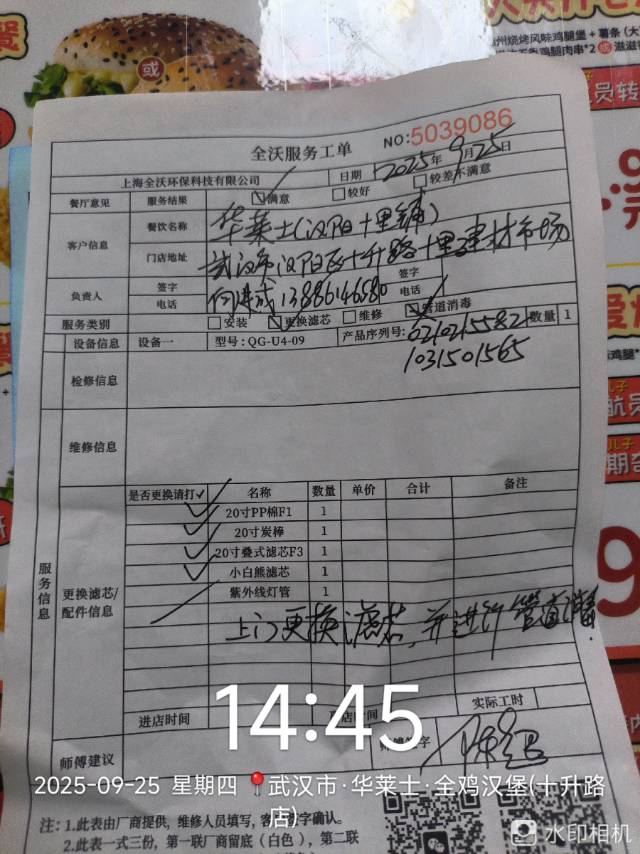 或
全沃服务工单
NO:5039086
上海全沃环保科技有限公司
日期 2025年9月25日
餐厅意见 服务结果 ☑满意 □较好 □较差不满意
客户信息 餐饮名称 华莱士(汉阳十里铺)
门店地址 武汉市汉阳区十升路十里建材市场
负责人 签字 签字
电话 13886146580 电话
服务类别 □安装 ☑更换滤芯 □维修 ☑管道消毒
设备信息 设备一 型号:QG-U4-09 产品序列号: 0210215582 数量 1
1031501565
检修信息
维修信息
服务信息
更换滤芯/配件信息
是否更换请打✓ 名称 数量 单价 合计 备注
✓ 20寸PP棉F1 1
✓ 20寸炭棒 1
✓ 20寸叠式滤芯F3 1
✓ 小白熊滤芯 1
紫外线灯管 1
上门更换滤芯,并进行管道消毒.
进店时间 实际工时
师傅建议
14:45
2025-09-25 星期四 武汉市·华莱士·金鸡汉堡(十升路店)
注:1.此表由厂商提供,维修人员填写,客
字确认。
2.此表一式三份,第一联厂商留底(白色)、第二联
水印相机